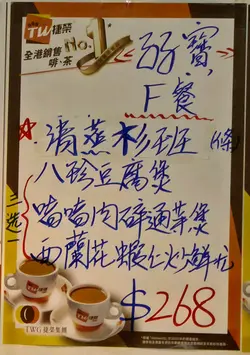 TW捷榮
全港銷售
啡‧茶
No.1
F餐
清蒸杉班 (1條)
八珍豆腐煲
啫啫肉碎通菜煲
西蘭花蝦仁炒鮮尤
三选一
$268
TWG 捷榮集團